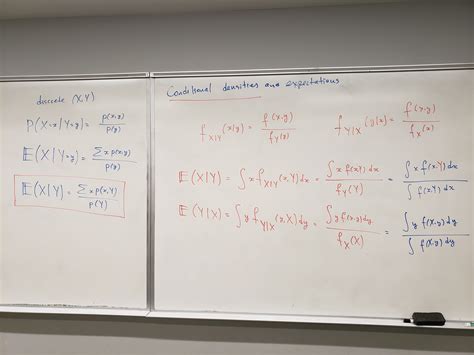 discrete (X,Y)
P(X=x|Y=y) = p(x,y)/p(y)
E(X|Y=y) = Σ x p(x,y)/p(y)
E(X|Y) = Σ x p(x,Y)/p(Y)
Conditional densities and expectations
f_{X|Y}(x|y) = f(x,y)/f_Y(y) f_{Y|X}(y|x) = f(x,y)/f_X(x)
E(X|Y) = ∫ x f_{X|Y}(x,Y) dx = ∫ x f(x,Y) dx / f_Y(Y) = ∫ x f(x,Y) dx / ∫ f(x,Y) dx
E(Y|X) = ∫ y f_{Y|X}(y,X) dy = ∫ y f(X,y) dy / f_X(X) = ∫ y f(X,y) dy / ∫ f(X,y) dy